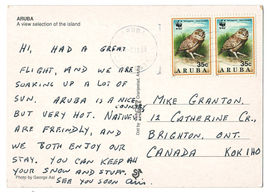 ARUBA
A view selection of the island
HI, HAD A GREAT
FLIGHT, AND WE ARE
SOAKING UP A LOT OF
SUN. ARUBA IS A NICE
COUNTRY
BUT VERY HOT. NATIVES
ARE FREINDLY, AND
WE BOTH ENJOY OUR
STAY. YOU CAN KEEP ALL
YOUR SNOW AND STUFF.
SEE YOU SOON
Photo by George
35c
ARUBA
35c
ARUBA
MIKE GRANTON.
12 CATHERINE CR.,
BRIGHTON, ONT.
CANADA K0K 1H0